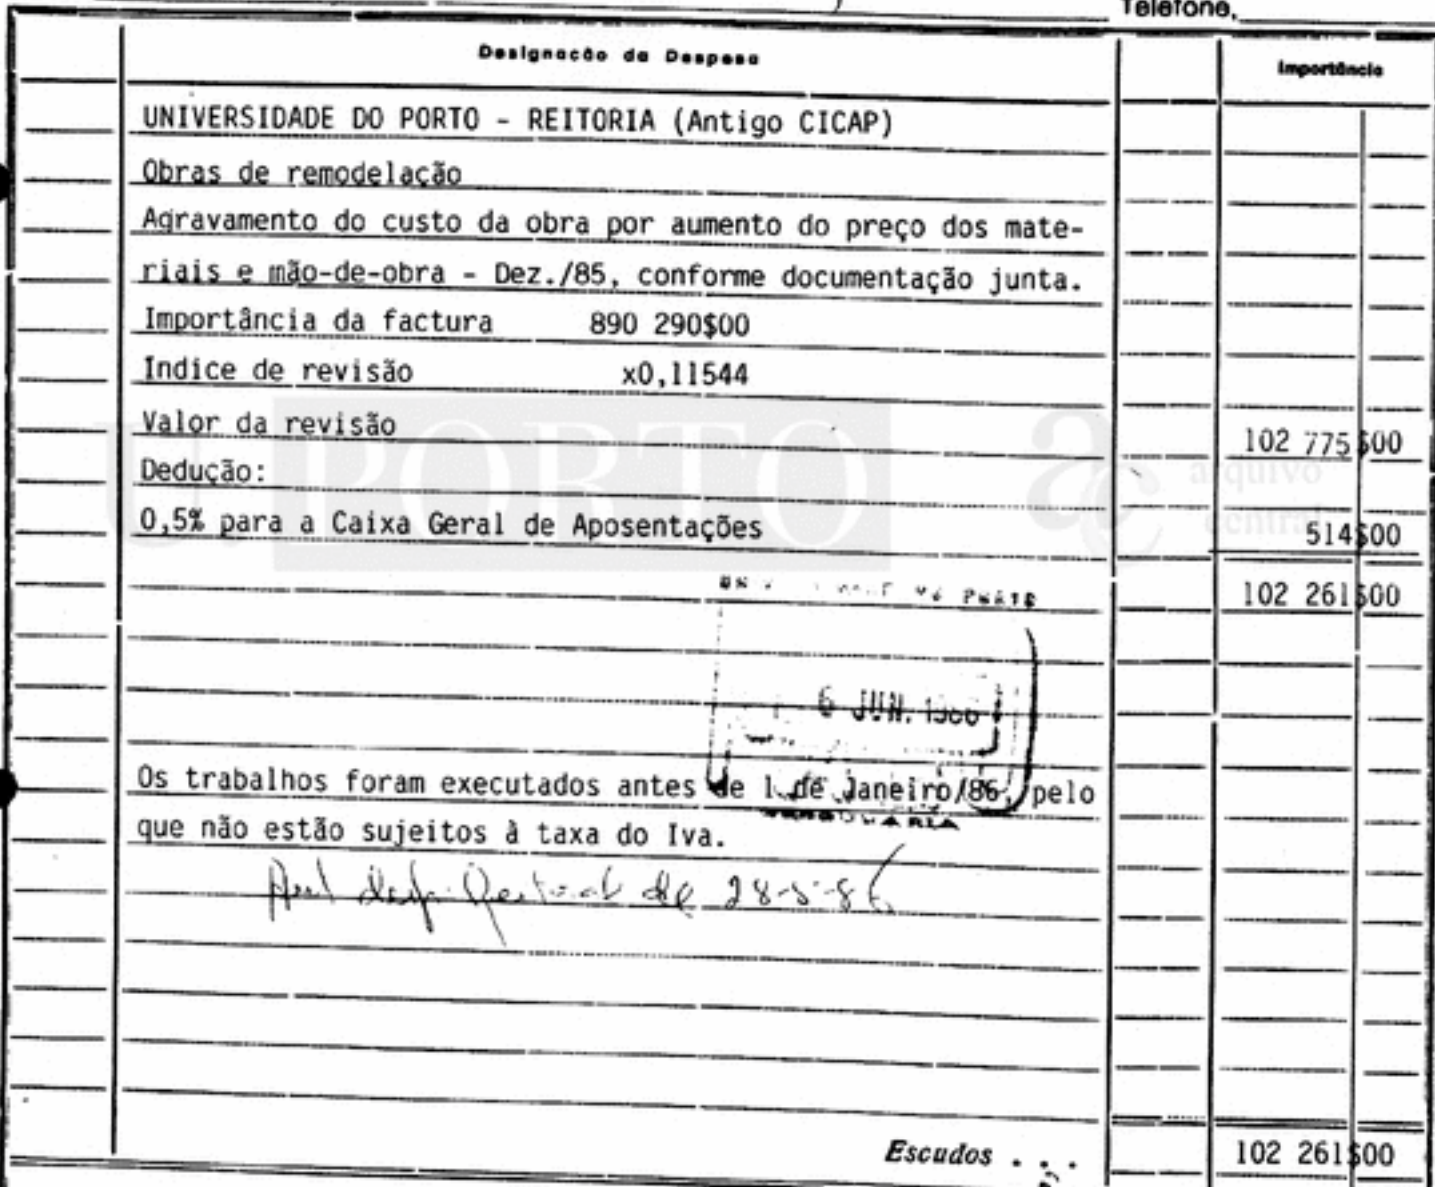 Telefone,
Designação da Despesa
Importância
UNIVERSIDADE DO PORTO - REITORIA (Antigo CICAP)
Obras de remodelação
Agravamento do custo da obra por aumento do preço dos mate-
riais e mão-de-obra - Dez./85, conforme documentação junta.
Importância da factura 890 290$00
Indice de revisão x0,11544
Valor da revisão 102 775$00
Dedução:
0,5% para a Caixa Geral de Aposentações 514$00
102 261$00
U. PORTO ac arquivo central
6 JUN. 1986
Os trabalhos foram executados antes de 1 de Janeiro/86, pelo
que não estão sujeitos à taxa do Iva.
de 28-5-86
Escudos . . . 102 261$00